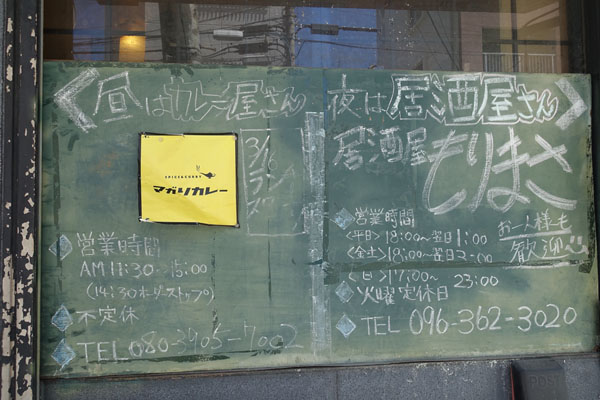 昼はカレー屋さん
SPICE&CURRY
マガリカレー
営業時間
AM 11:30〜15:00
(14:30オーダーストップ)
不定休
TEL 080-3905-7002
夜は居酒屋さん
居酒屋もりまさ
営業時間
<平日>18:00〜翌日1:00
<金土>18:00〜翌日2:00
<日>17:00〜23:00
火曜定休日
TEL 096-362-3020
お一人様も
歓迎